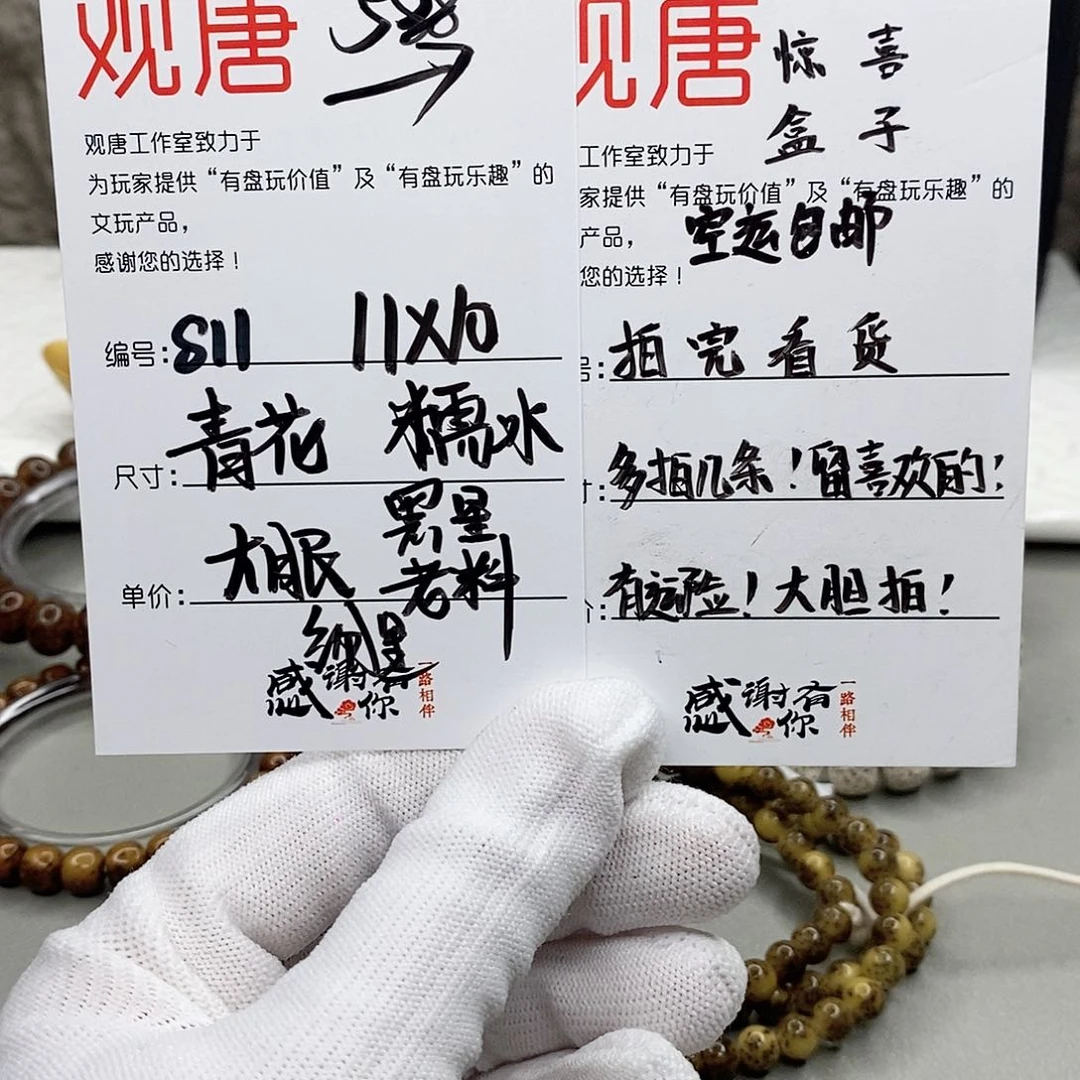 观唐
观唐工作室致力于
为玩家提供“有盘玩价值”及“有盘玩乐趣”的
文玩产品，
感谢您的选择！
编号：S11 11X10
尺寸：青花 糯冰
黑星
单价：大眼 老料
细星
感谢有你
一路相伴
观唐 惊喜
盒子
工作室致力于
家提供“有盘玩价值”及“有盘玩乐趣”的
产品， 空运包邮
您的选择！
号：拍完看货
寸：多拍几条！留喜欢的！
价：有运险！大胆拍！
感谢有你
一路相伴